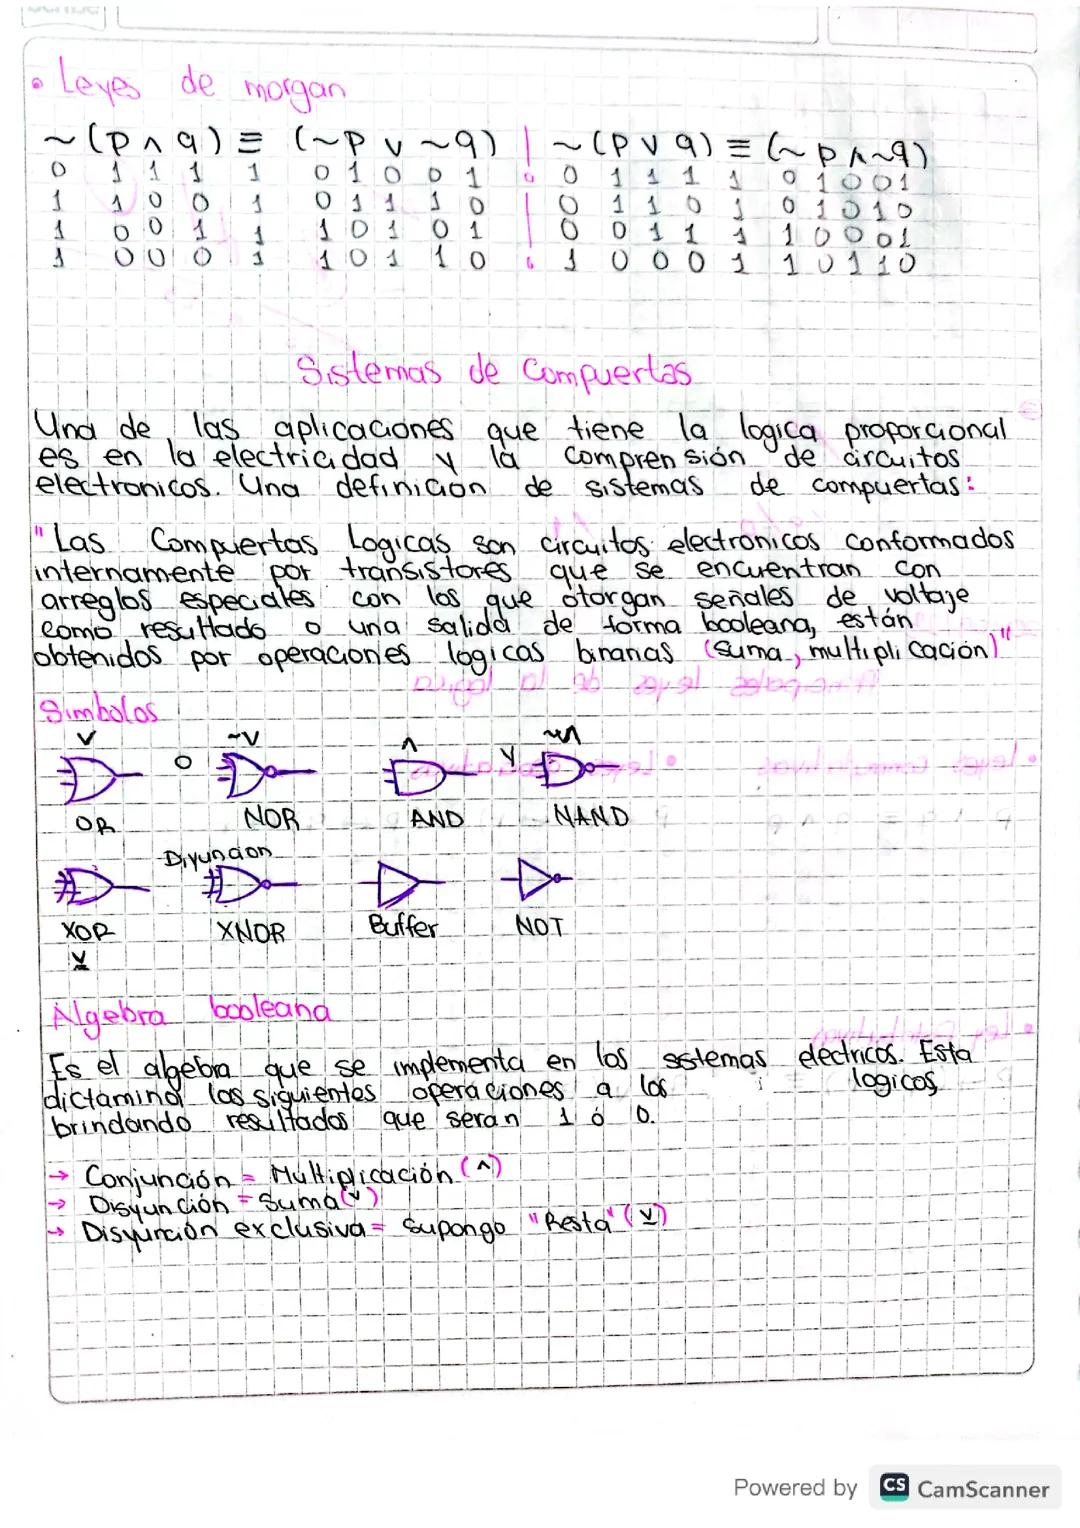 • Leyes de morgan
~(p ∧ q) ≡ (~p ∨ ~q) | ~(p ∨ q) ≡ (~p ∧ ~q)
0 1 1 1 1 0 1 0 0 1 0 1 1 1 1 0 1 0 0 1
1 1 0 0 1 0 1 1 1 0 0 1 1 0 1 0 1 0 1 0
1 0 0 1 1 1 0 1 0 1 0 0 1 1 1 1 0 0 0 1
1 0 0 0 1 1 0 1 1 0 1 0 0 0 1 1 0 1 1 0
Sistemas de Compuertas
Una de las aplicaciones que tiene la logica proporcional
es en la electricidad y la comprensión de circuitos
electronicos. Una definición de sistemas de compuertas:
"Las Compuertas Logicas son circuitos electronicos conformados
internamente por transistores que se encuentran con
arreglos especiales con los que otorgan señales de voltaje
como resultado o una salida de forma booleana, están
obtenidos por operaciones lógicas binarias (suma, multiplicación)"
Simbolos
∨ o ~∨ ∧ y ~∧
OR NOR AND NAND
Diyuncion
XOR XNOR Buffer NOT
⊻
Algebra booleana
Es el algebra que se implementa en los sistemas electricos. Esta
dictamina las siguientes operaciones a los logicos,
brindando resultados que seran 1 ó 0.
→ Conjunción = Multiplicación (∧)
→ Disyunción = Suma (∨)
→ Disyunción exclusiva = supongo "Resta" (⊻)
Powered by CS CamScanner